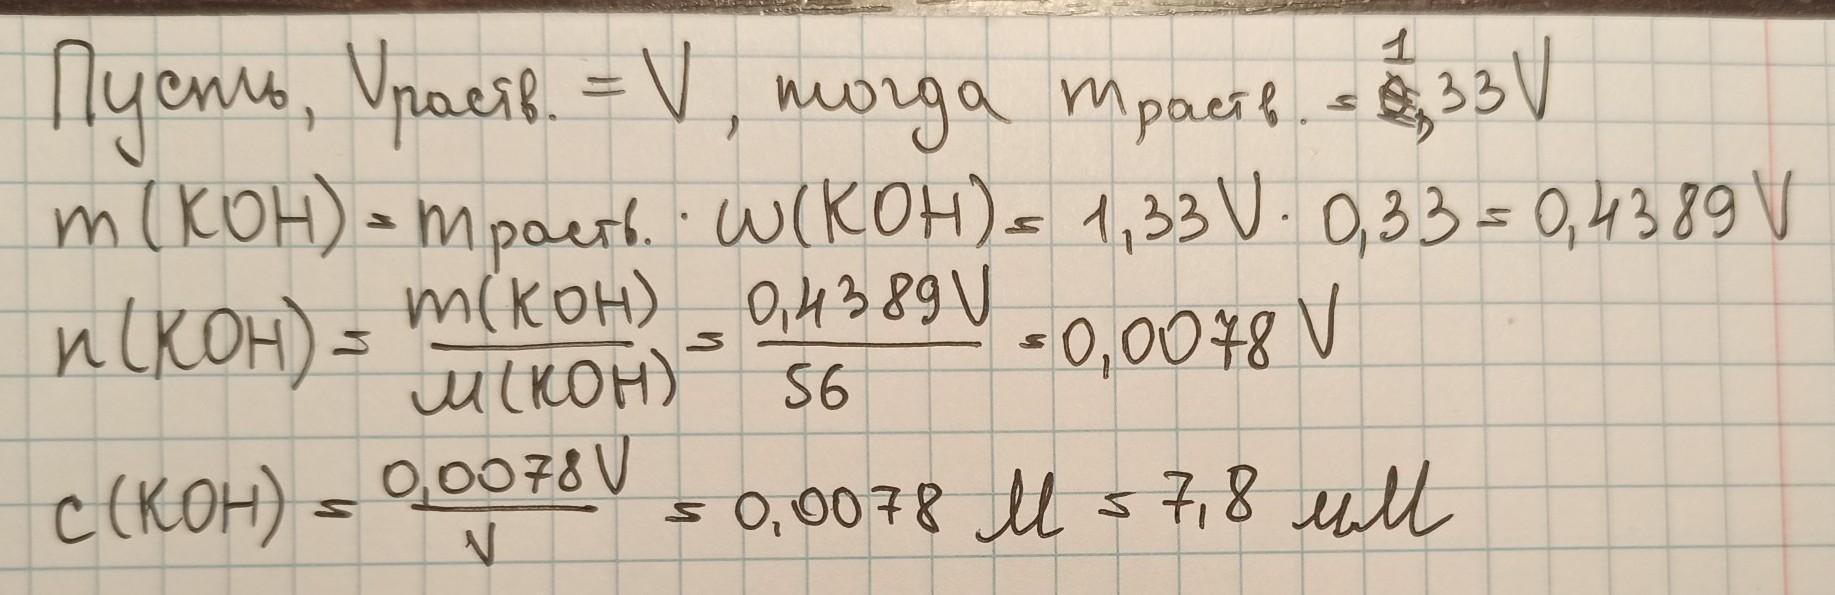 Пусть, Vраств. = V, тогда mраств. = 1,33V
m(KOH) = mраств. · ω(KOH) = 1,33V · 0,33 = 0,4389V
n(KOH) = m(KOH)/M(KOH) = 0,4389V/56 = 0,0078V
c(KOH) = 0,0078V/V = 0,0078 M = 7,8 мM